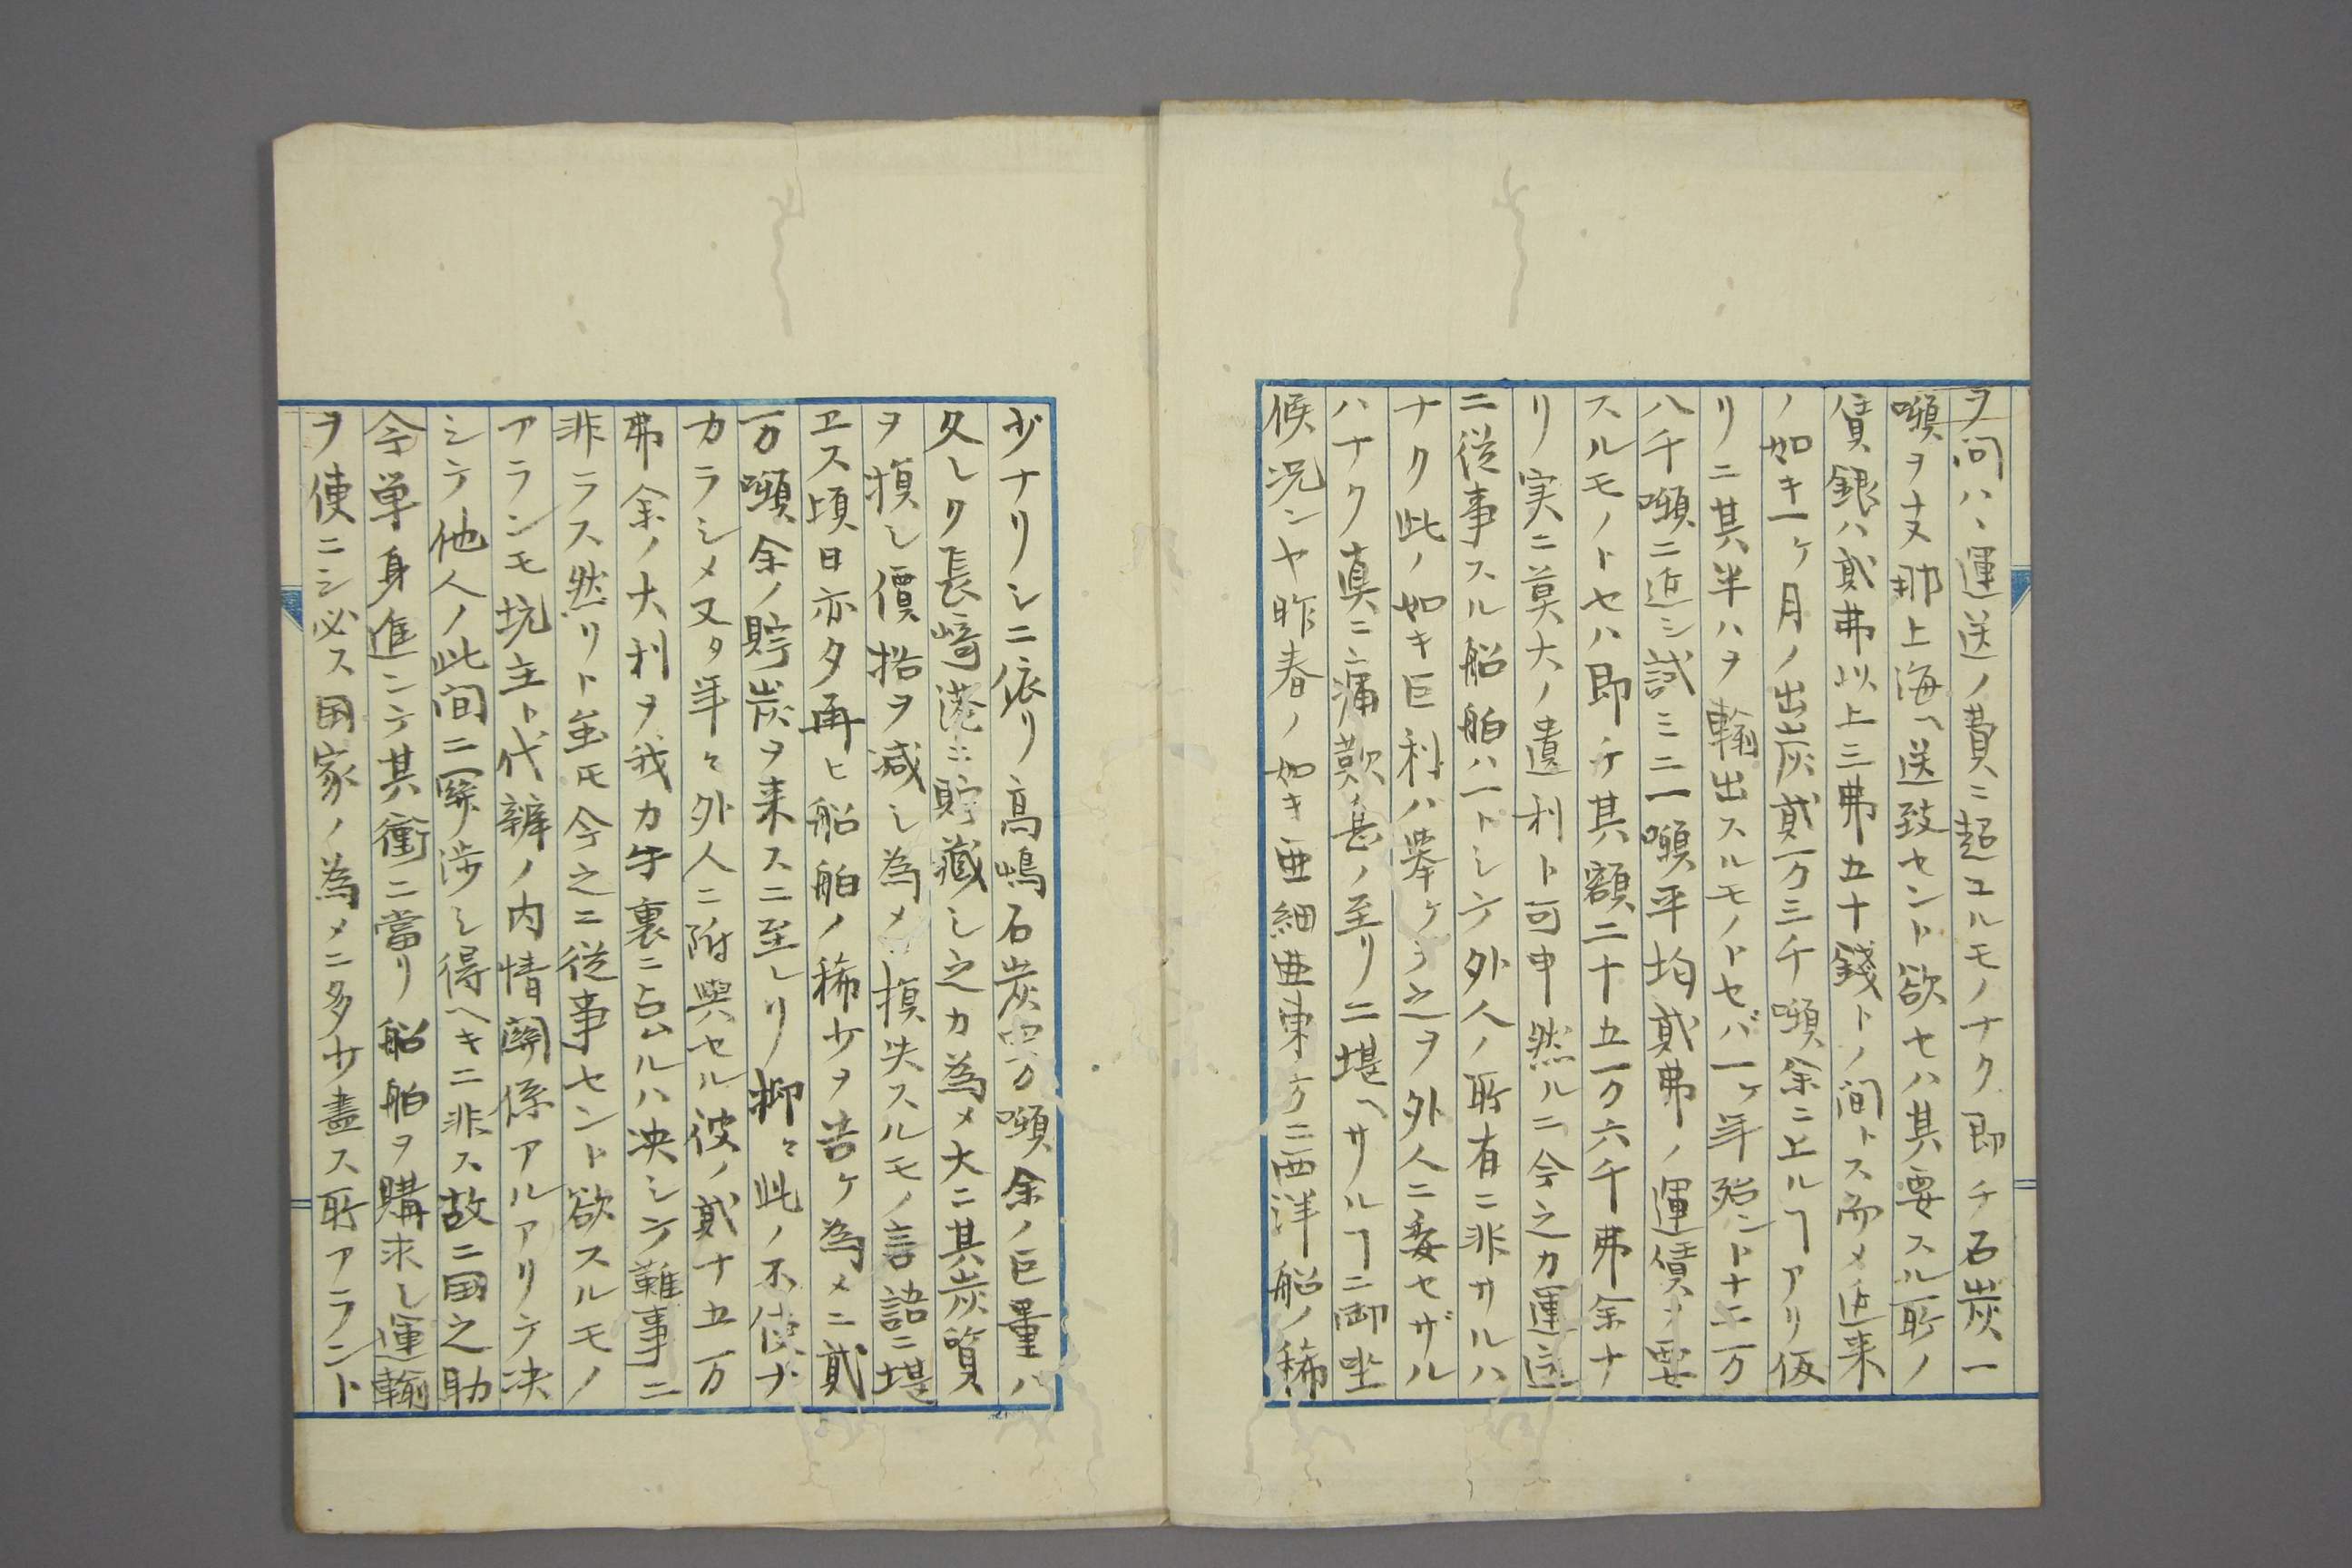 ヲ問ハヽ運送ノ費ニ超ユルモノナク即チ石炭一
噸ヲ支那上海ヘ送致セント欲セハ其要スル所ノ
債銀ハ貳弗以上三弗五十錢トノ間トス而メ近来
ノ如キ一ヶ月ノ出炭貳万三千噸余ニ上ルヿアリ仮
リニ其半ハヲ輸出スルモノトセバ一ヶ年殆ント十二万
八千噸ニ近シ試ミニ一噸平均貳弗ノ運債ヲ要
スルモノトセハ即チ其額二十五万六千弗余ナ
リ実ニ莫大ノ遺利ト可申然ルニ今之カ運送
ニ從事スル船舶ハ一トシテ外人ノ所有ニ非サルハ
ナク此ノ如キ巨利ハ挙ケテ之ヲ外人ニ委セザル
ハナク真ニ痛歎ノ甚ノ至リニ堪ヘサルヿニ御坐
候況ンヤ昨春ノ如キ亜細亜東方ニ西洋船ノ稀
少ナリシニ依リ高嶋石炭万噸余ノ巨量ハ
久シク長崎港ニ貯藏シ之カ為メ大ニ其炭質
ヲ損シ價格ヲ減シ為メ損失スルモノ言語ニ堪
ヱス頃日亦タ再ヒ船舶ノ稀少ヲ告ケ為メニ貳
万噸余ノ貯炭ヲ来スニ至レリ抑々此ノ不便ナ
カラシメ又タ年々外人ニ附與セル彼ノ貳十五万
弗余ノ大利ヲ我カ手裏ニ占ムルハ决シテ難事ニ
非ラス然リト虽モ今之ニ従事セント欲スルモノ
アランモ坑主ト代辨ノ内情關係アルアリテ决
シテ他人ノ此间ニ関渉シ得ヘキニ非ス故ニ国之助
今単身進ンテ其衝ニ當リ船舶ヲ購求シ運輸
ヲ便ニシ必ス国家ノ為メニ多少盡ス所アラント